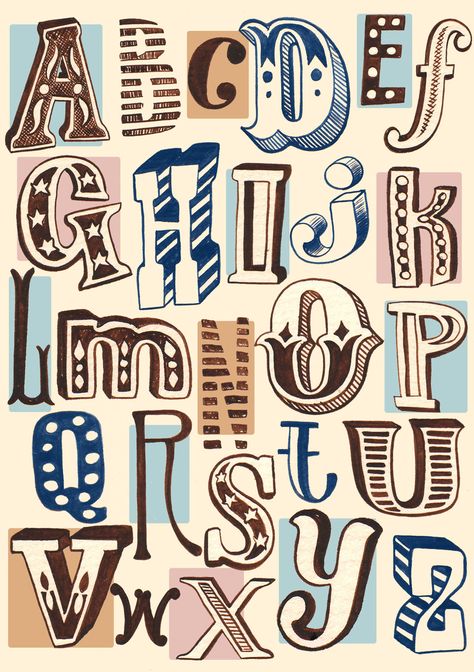 A B C D E f
G H I j k
L m N O P
Q R S t U
V W X y Z